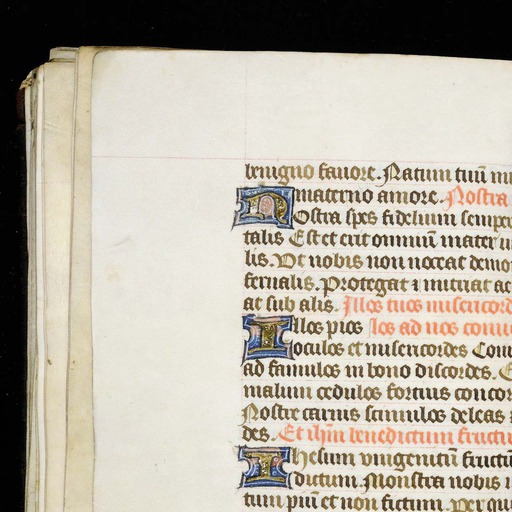 benigno fauore. Natum tuũ
materno amore. Nostra
Nostra spes fidelium semper
talis Est et erit omniũ mater
lis. Vt nobis non noceat demo
fernalis. Protegat
at sub alis. Illos tuos misericord
Illos pios los ad nos conu
oculos et misericordes Con
ad famulos in bono discordes.
malum cedulos fortius concor
Nostre carnis stimulos deleas
des. Et ihm̃ benedictum fructu
Ihesum vnigenitũ fructũ
dictum. Monstra nobis
tum piũ et non fictum. per qu